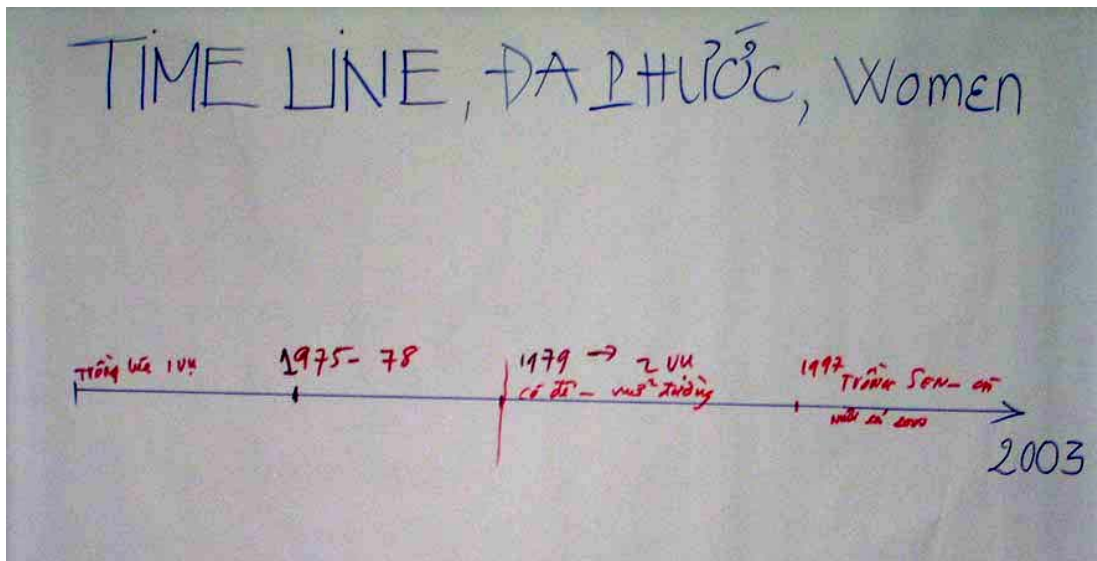 TIME LINE, ĐA PHƯỚC, Women
Trồng lúa 1 vụ
1975- 78
1979 → 2 vụ
có đê - mở đường
1997 Trồng SEN-
nuôi cá 2000
2003